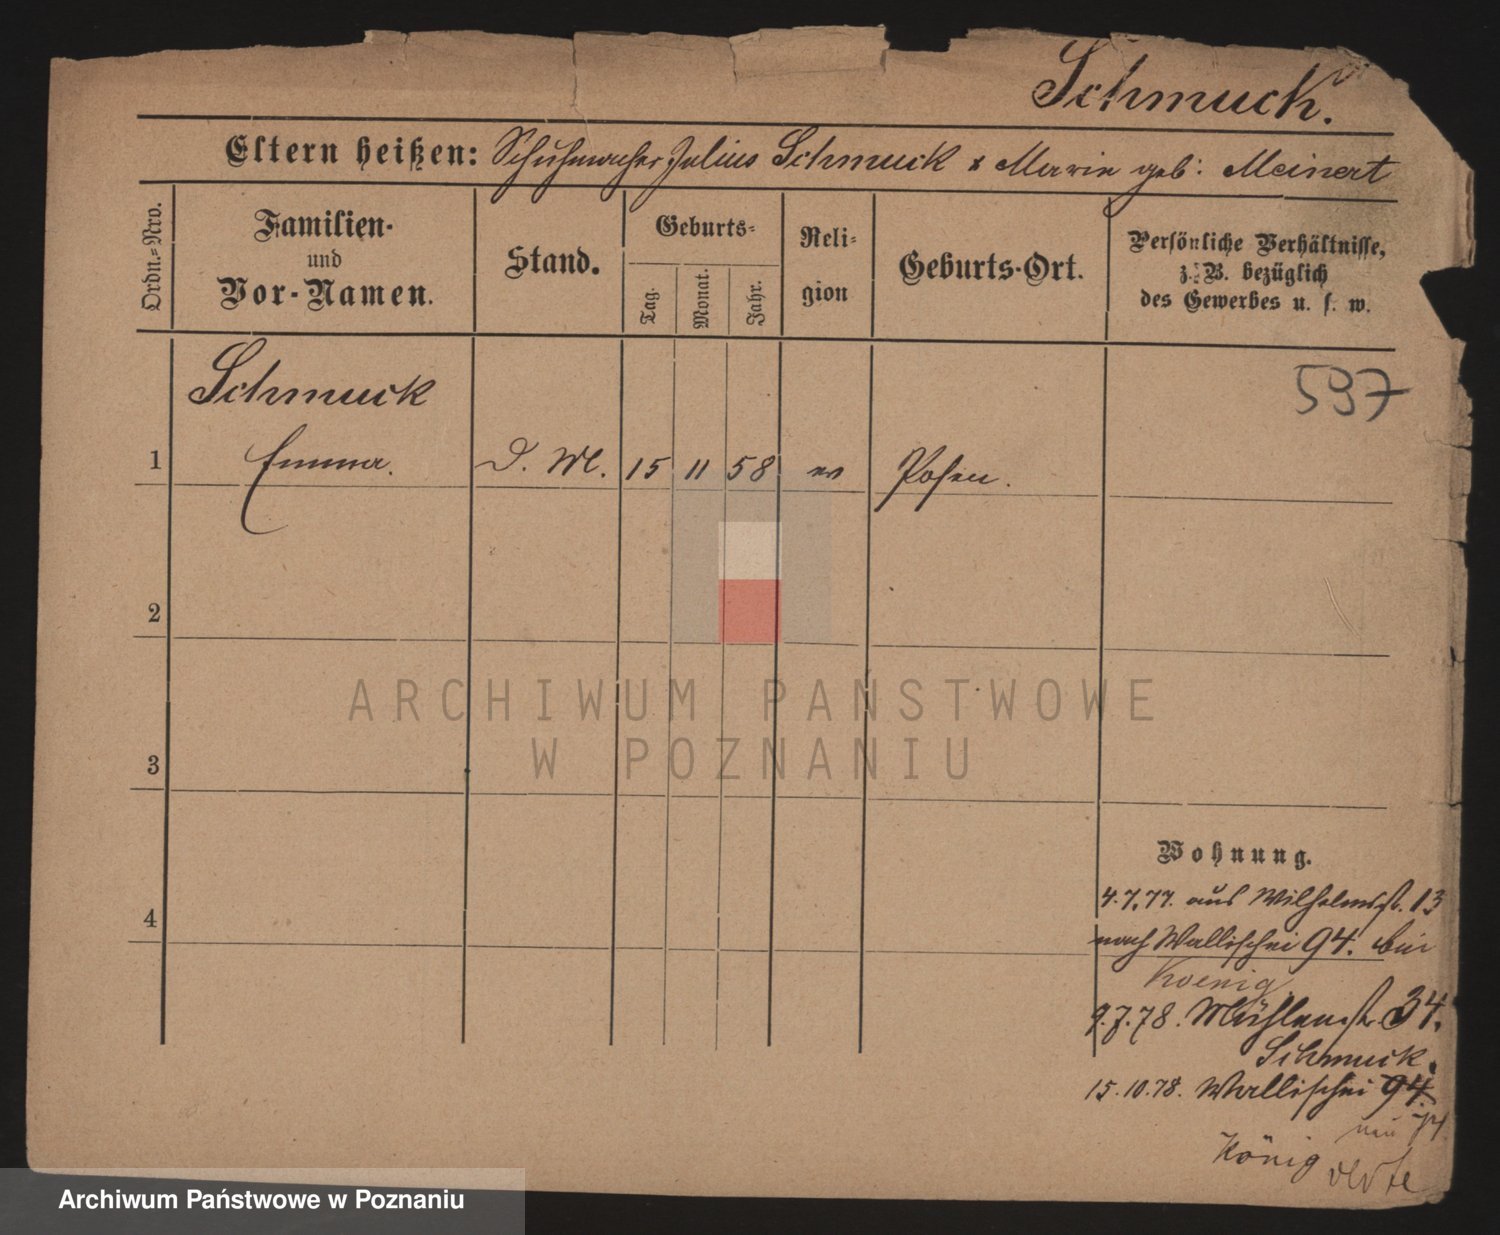 Schmuck.
Eltern heißen: Schuhmacher Julius Schmuck & Marie geb: Meinert
Ordn.-Nro.
Familien-
und
Vor-Namen.
Stand.
Geburts-
Tag. Monat. Jahr.
Reli-
gion
Geburts-Ort.
Persönliche Verhältnisse,
z. B. bezüglich
des Gewerbes u. s. w.
597
Schmuck
1 Emma. D. M. 15 11 58 ev Posen.
2
3
4
ARCHIWUM PAŃSTWOWE
W POZNANIU
Wohnung.
4.7.77. aus Wilhelmsst. 13
nach Wallischei 94. bei
Koenig
9.7.78. Mühlenstr. 34.
Schmuck.
15.10.78. Wallischei 94.
neu 74
König
Archiwum Państwowe w Poznaniu